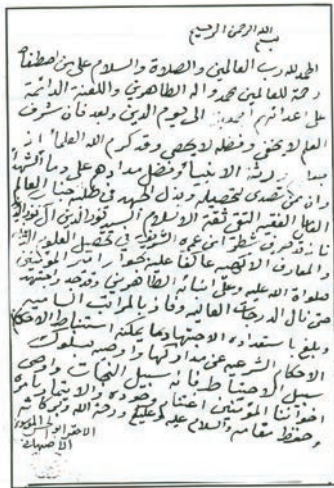 بسم الله الرحمن الرحيم
الحمد لله رب العالمين والصلاة والسلام على من اصطفاه
رحمة للعالمين محمد واله الطاهرين واللعنة الدائمة
على اعدائهم اجمعين الى يوم الدين وبعد فان شرف
العلم لا يخفى وفضله لا يحصى وقد كرم الله العلماء
ورثة الانبياء وفضل مدادهم على دماء الشهداء
وان ممن تصدى لتحصيله وبذل الجهد في طلبه جناب العالم
الفقيه التقي ثقة الاسلام السيد نور الدين
فانه قد صرف شطرا من عمره الشريف في تحصيل العلوم
والمعارف الالهية عاكفا عليه بجوار امير المؤمنين
صلوات الله عليه وعلى ابنائه الطاهرين وقد جد واجتهد
حتى نال الدرجات العالية وفاز بالمراتب السامية
وبلغ باستعداده الاجتهاد بما يمكنه استنباط الاحكام
الاحكام الشرعية عن مداركها واوصيه بسلوك
سبيل الاحتياط فانه سبيل النجاة واوصي
اخواننا المؤمنين اغتنام وجوده والايتمار بامره
وحفظ مقامه والسلام عليه وعليكم ورحمة الله وبركاته
الاحقر ابو الحسن الموسوي
الاصبهاني